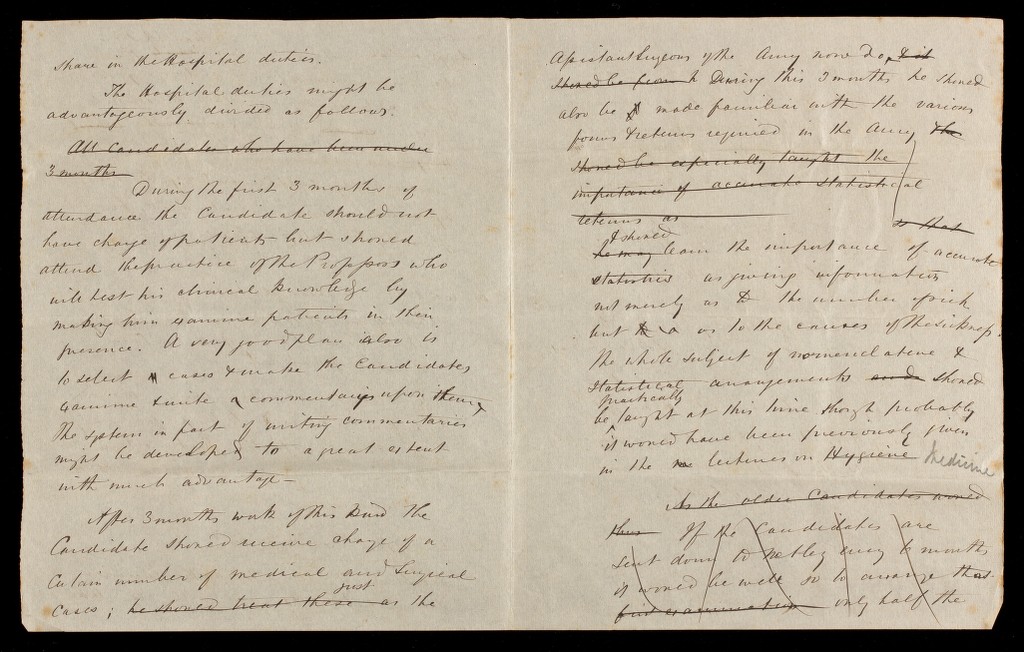 share in the Hospital duties.
The Hospital duties might be
advantageously divided as follows.
All Candidates who have been under
3 months
During the first 3 months of
attendance the Candidate should not
have charge of patients but should
attend the practice of the Professors who
will test his clinical knowledge by
making him examine patients in their
presence. A very good plan also is
to select cases & make the Candidates
examine & write a commentary upon them,
The system in fact of writing commentaries
might be developed to a great extent
with much advantage –
After 3 months work of this kind the
Candidate should receive charge of a
Certain number of medical and Surgical
just
Cases; he should treat these as the
Assistant Surgeons of the Army now do, & it
should be from During this 3 months he should
also be made familiar with the various
forms & returns required in the Army the
should be especially taught the
importance of accurate statistical
returns as so that
& should
he may learn the importance of accurate
statistics as giving information
not merely as to the number of sick
but as to the causes of the sickness.
The whole subject of nomenclature &
Statistical arrangements should
practically
be taught at this time though probably
it would have been previously given
in the lectures on Hygiene Medicine
As the older Candidates would
thus If the Candidates are
sent down to Netley every 6 months
it would be well so to arrange that
first examination only half the